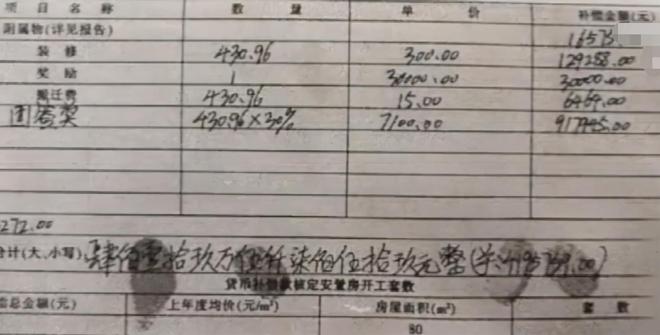 项目名称 数量 单价 补偿金额(元)
附属物(详见报告) 16573.
装修 430.96 300.00 129288.00
奖励 1 30000.00 30000.00
搬迁费 430.96 15.00 6464.00
团签奖 430.96×30% 7100.00 917945.00
272.00
合计(大、小写) 肆佰壹拾玖万伍仟柒佰伍拾玖元整(¥:4195759.00)
货币补偿款核定安置房开工套数
偿总金额(元) 上年度均价(元/m²) 房屋面积(m²) 套数
80